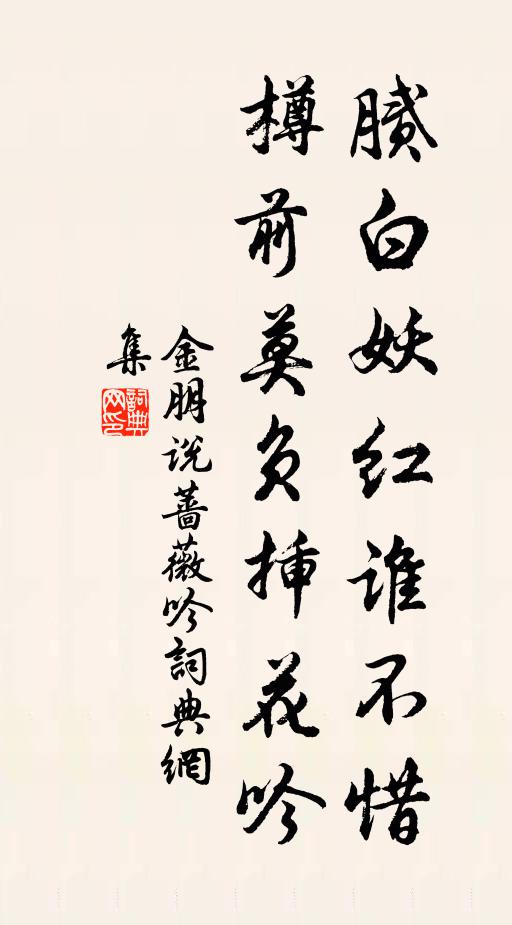 膩白妖红谁不惜
樽前莫负插花吟
金朋说蔷薇吟詞典網
集
詞典网印